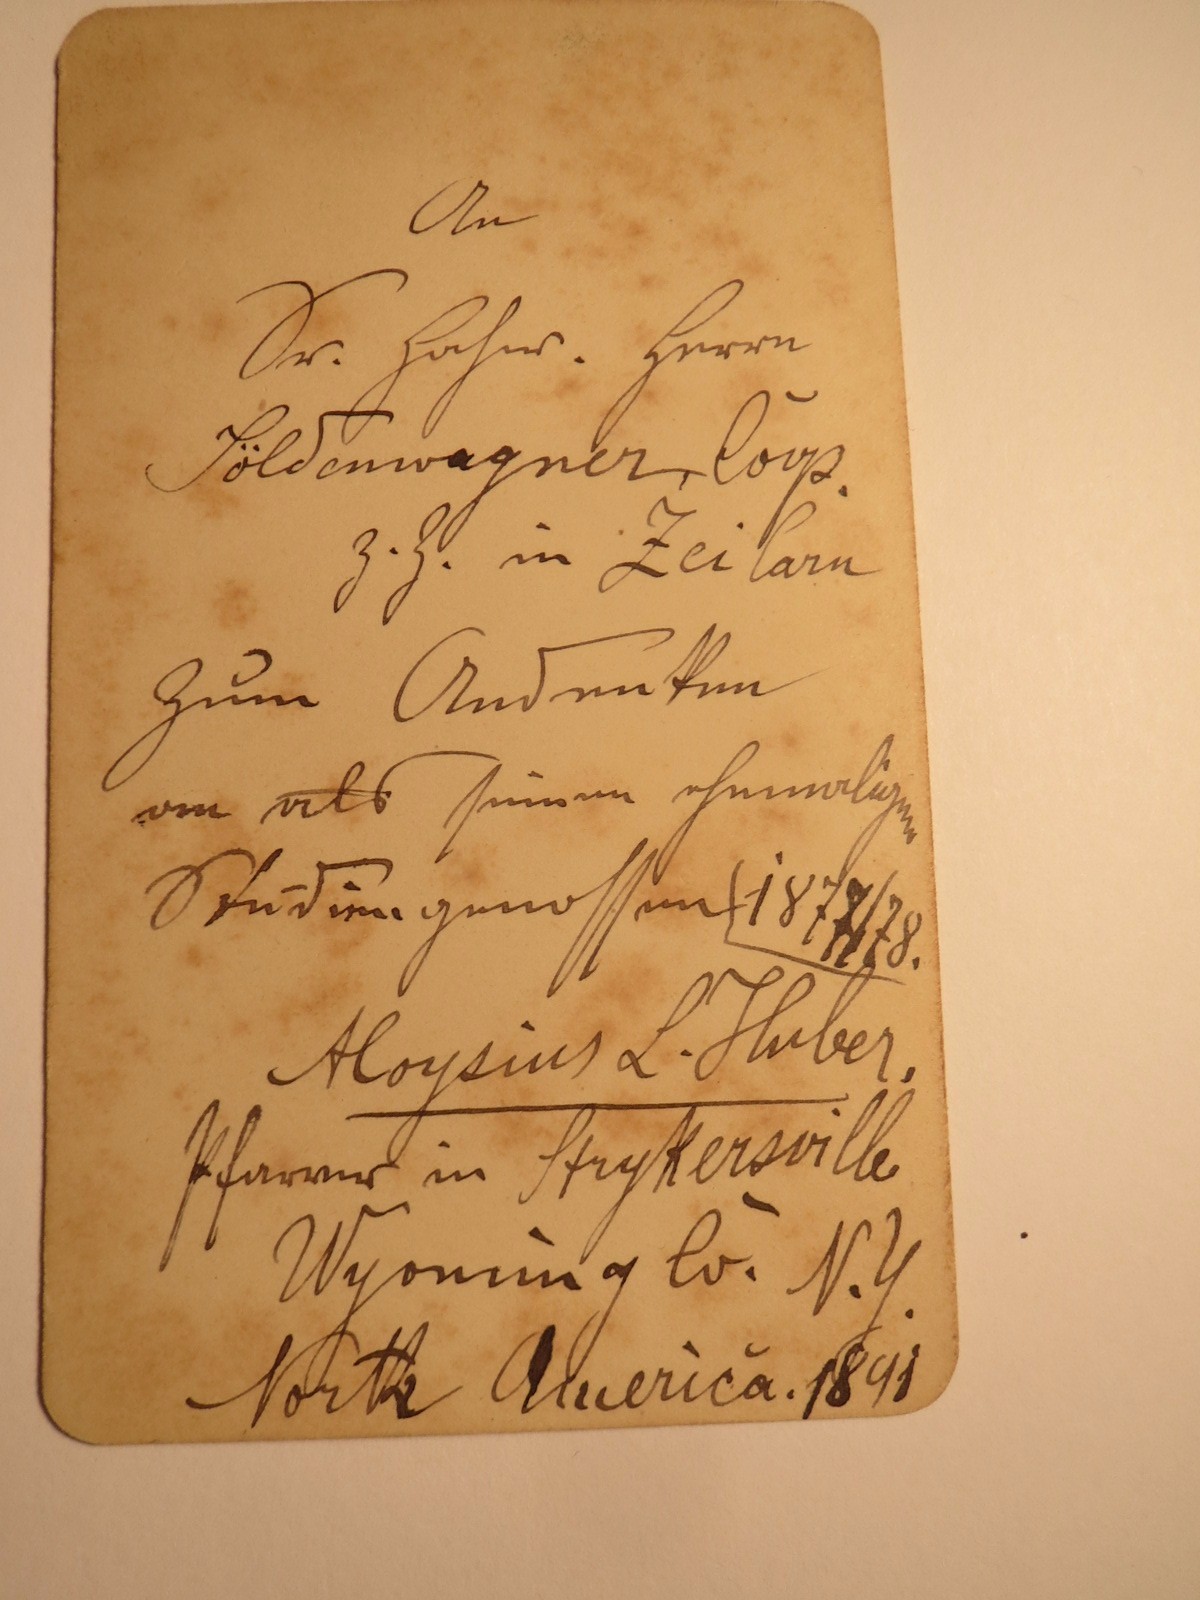 An
Sr. Hochw. Herrn
Söldenwagner, Coop.
z. Z. in Zeilarn
Zum Andenken
an als seinen ehemaligen
Studiengenossen 1877/78.
Aloysius L. Huber.
Pfarrer in Strykersville
Wyoming Co. N.Y.
North America. 1891